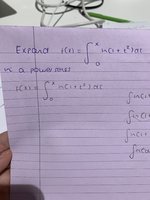 Expand f(x) = ∫₀ˣ ln(1+t²)dt
in a power series
f(x) = ∫₀ˣ ln(1+t²)dt
∫ln(1
∫ln(1
∫ln(1+
∫ln(1